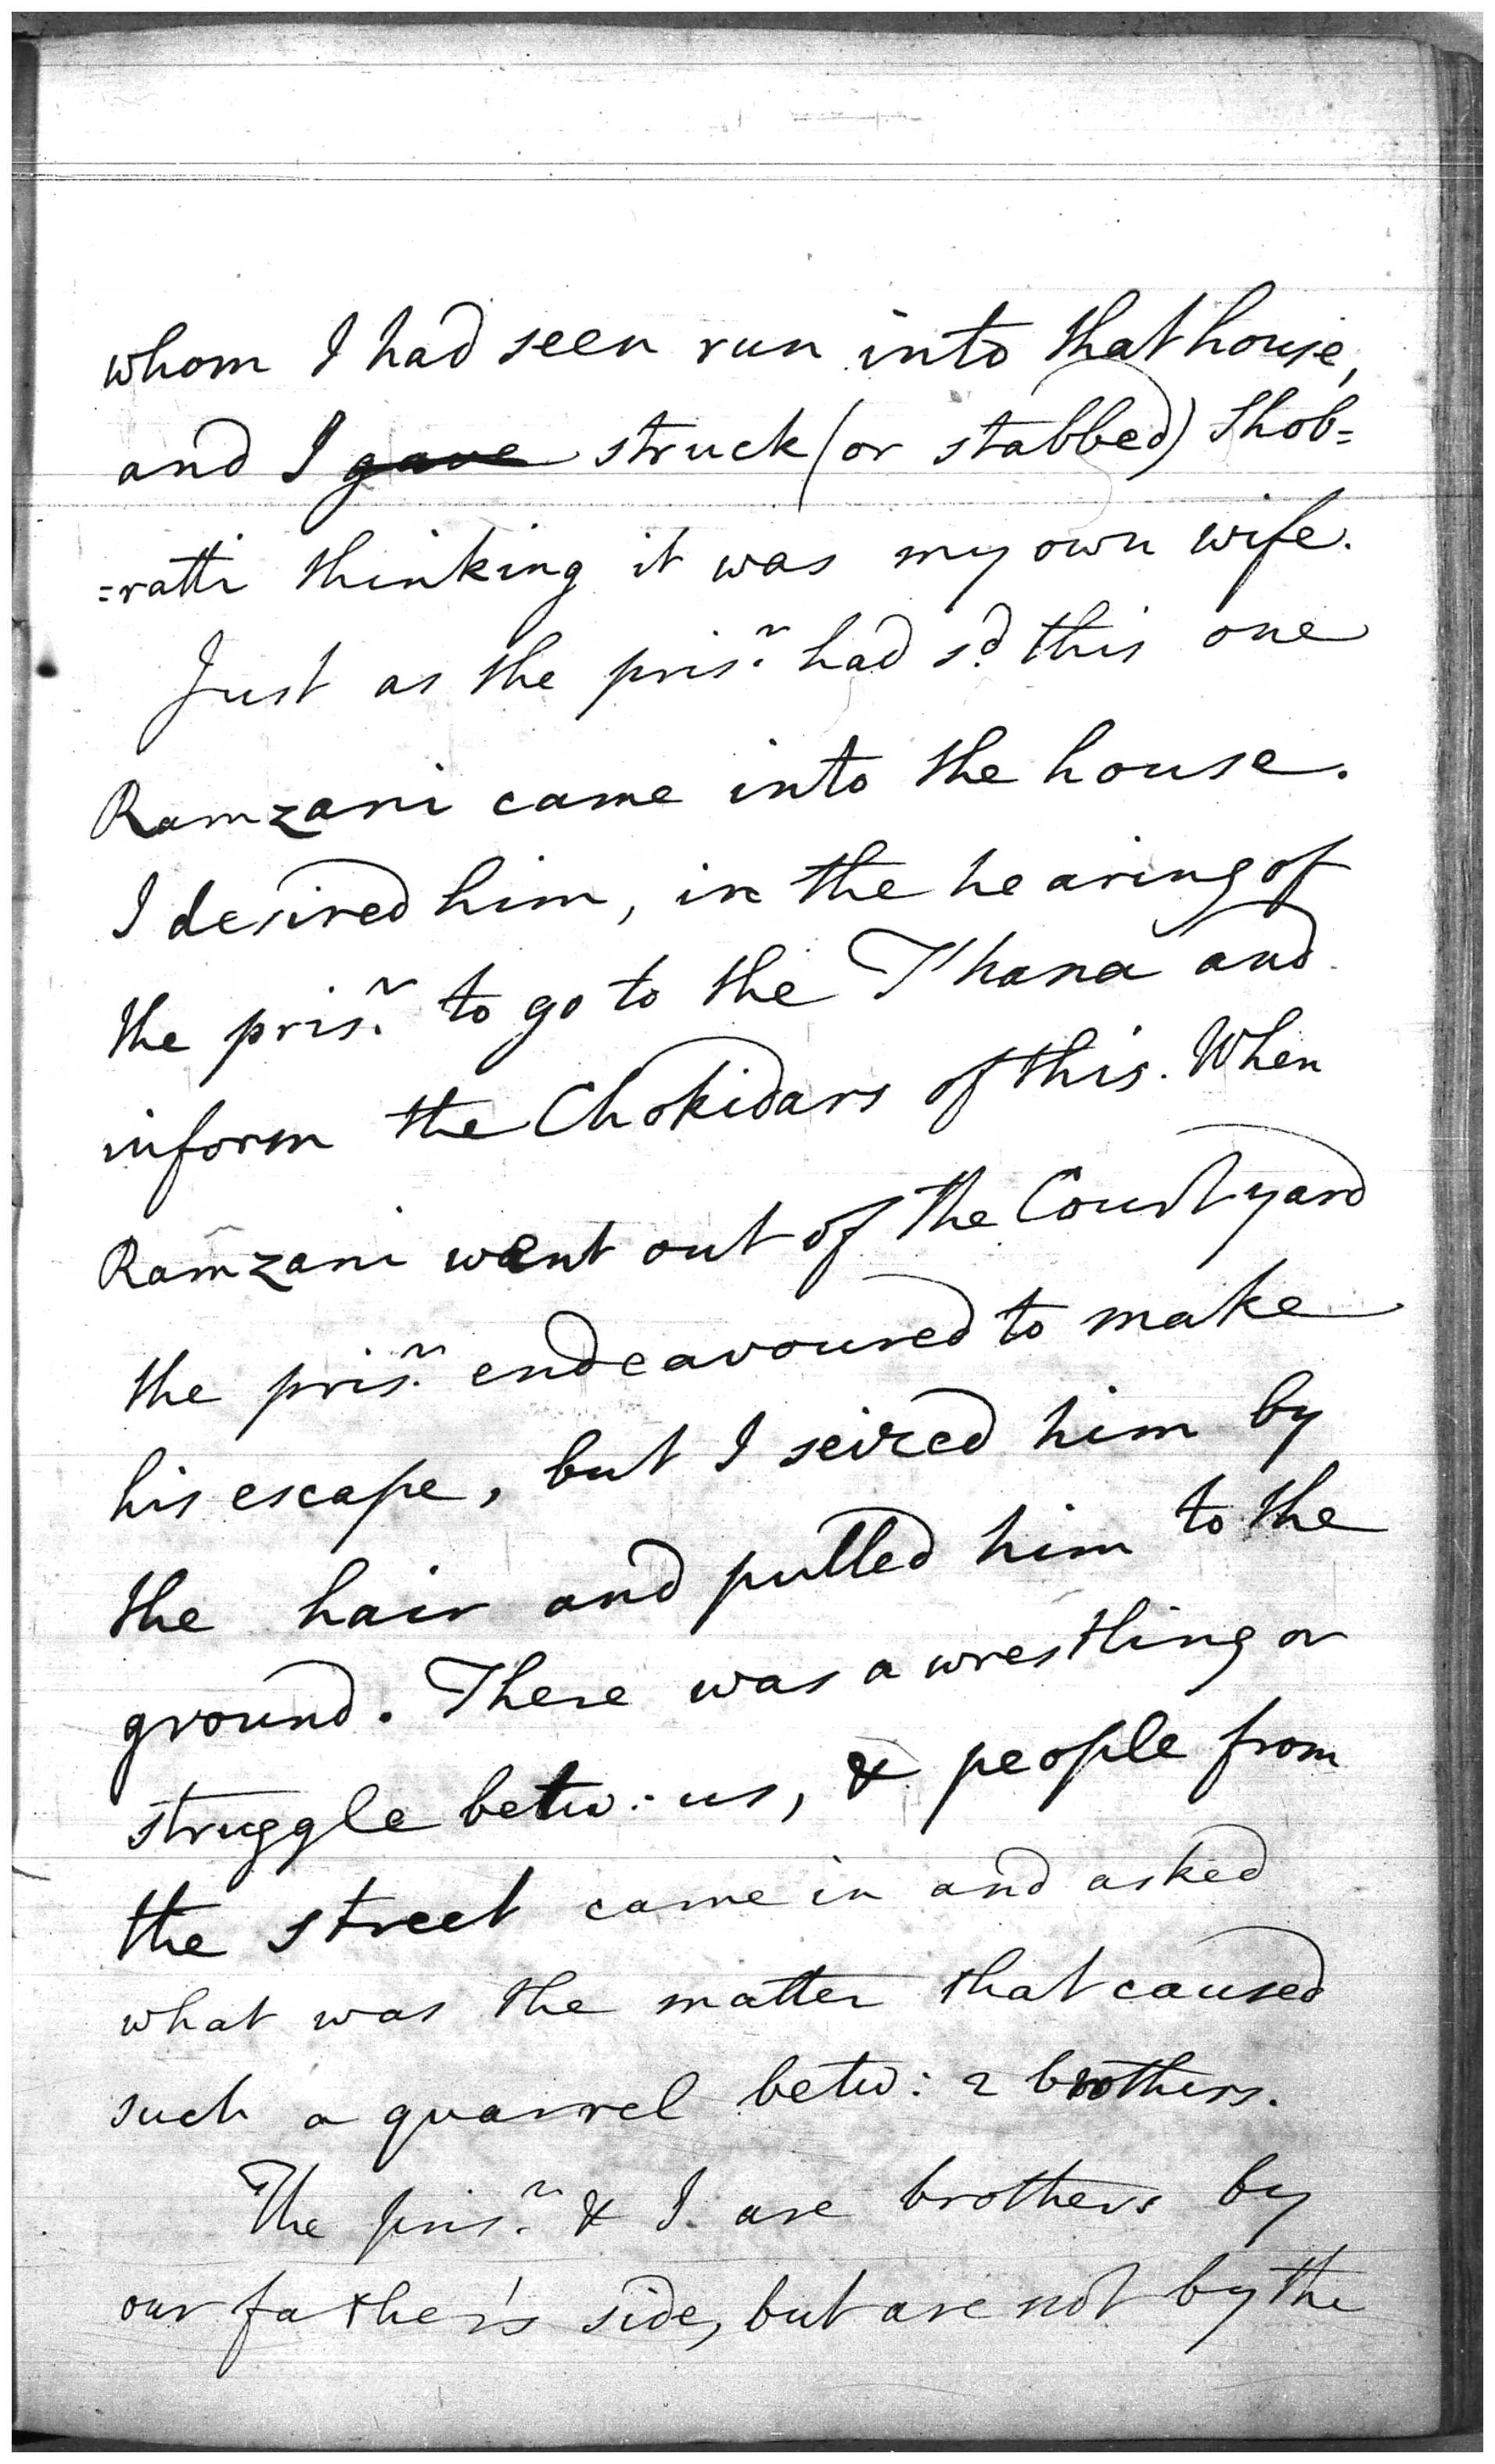 whom I had seen run into that house,
and I gave struck (or stabbed) Shob=
=ratti thinking it was my own wife.
Just as the pris.r had s.d this one
Ramzani came into the house.
I desired him, in the hearing of
the pris.r to go to the Thana and
inform the Chokidars of this. When
Ramzani went out of the Court yard
the pris.r endeavoured to make
his escape, but I seized him by
the hair and pulled him to the
ground. There was a wrestling or
struggle betw: us, & people from
the street came in and asked
what was the matter that caused
such a quarrel betw: 2 brothers.
The pris.r & I are brothers by
our father's side, but are not by the